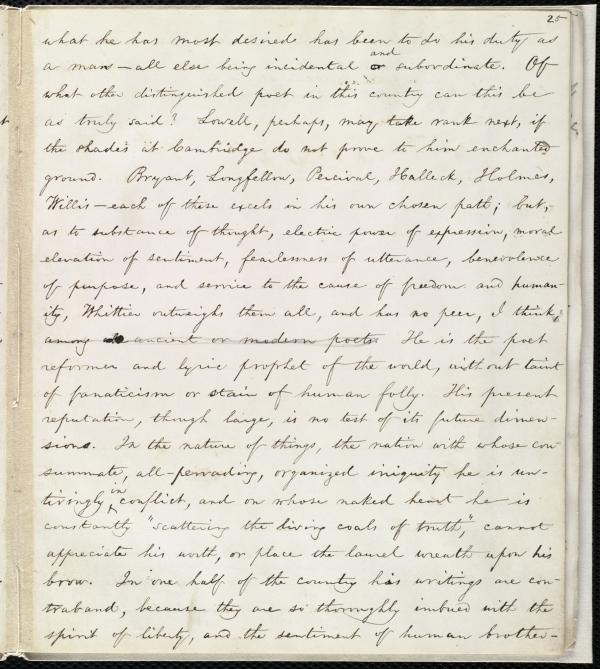 25
what he has most desired has been to do his duty as
a man — all else being incidental and or subordinate. Of
what other distinguished poet in this country can this be
as truly said? Lowell, perhaps, may take rank next, if
the shades at Cambridge do not prove to him enchanted
ground. Bryant, Longfellow, Percival, Halleck, Holmes,
Willis — each of these excels in his own chosen path; but,
as to substance of thought, electric power of expression, moral
elevation of sentiment, fearlessness of utterance, benevolence
of purpose, and service to the cause of freedom and human-
ity, Whittier outweighs them all, and has no peer, I think,
among ancient or modern poets. He is the poet
reformer and lyric prophet of the world, without taint
of fanaticism or stain of human folly. His present
reputation, though large, is no test of its future dimen-
sions. In the nature of things, the nation with whose con-
summate, all-pervading, organized iniquity he is un-
tiringly in conflict, and on whose naked heart he is
constantly "scattering the living coals of truth," cannot
appreciate his worth, or place the laurel wreath upon his
brow. In one half of the country his writings are con-
traband, because they are so thoroughly imbued with the
spirit of liberty, and the sentiment of human brother-